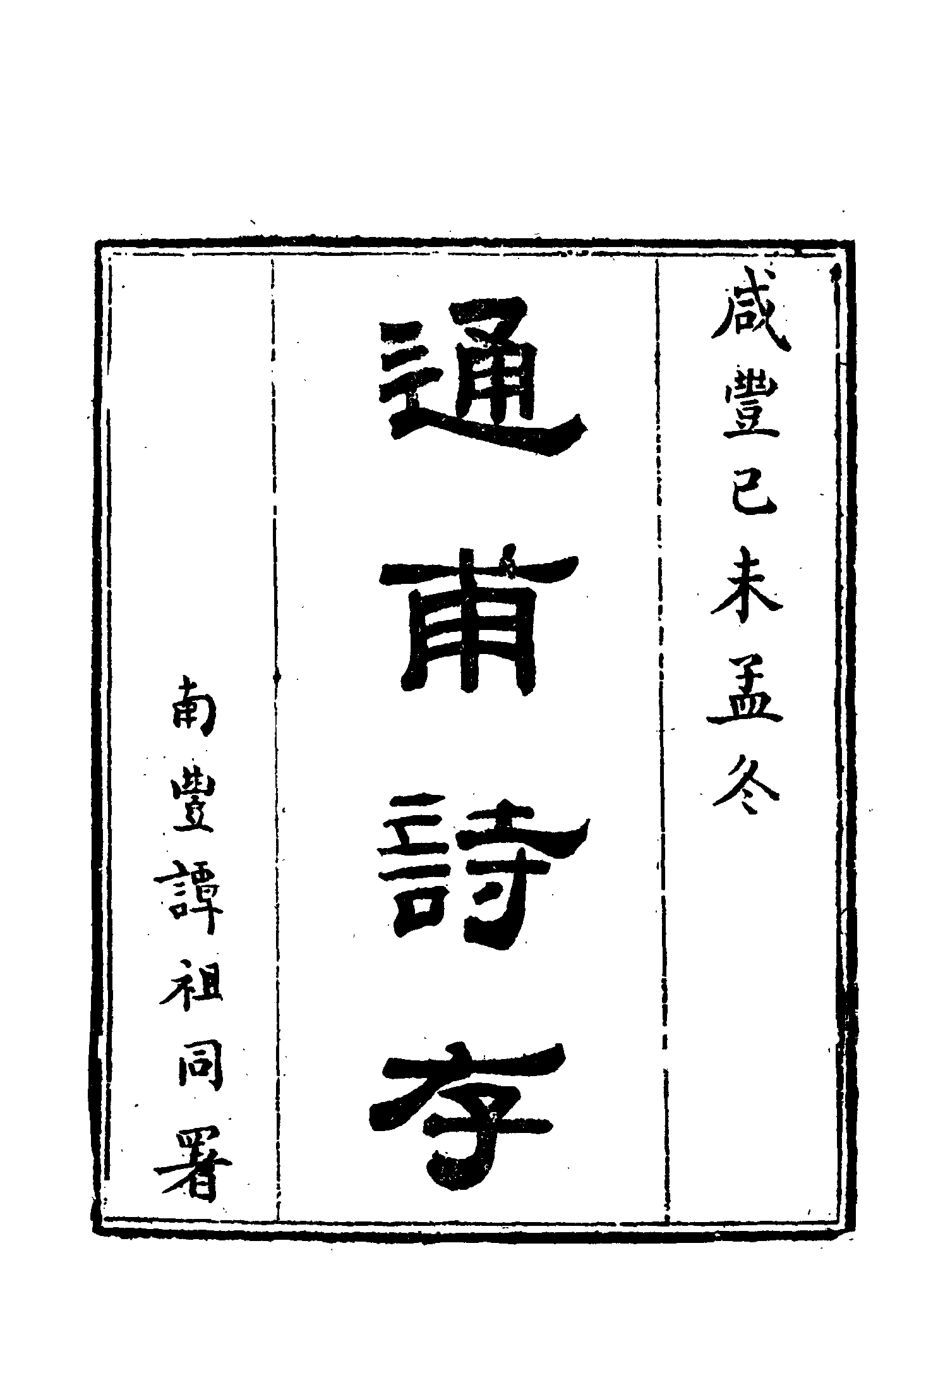 咸豐己未孟冬
通甫詩存
南豐譚祖同署